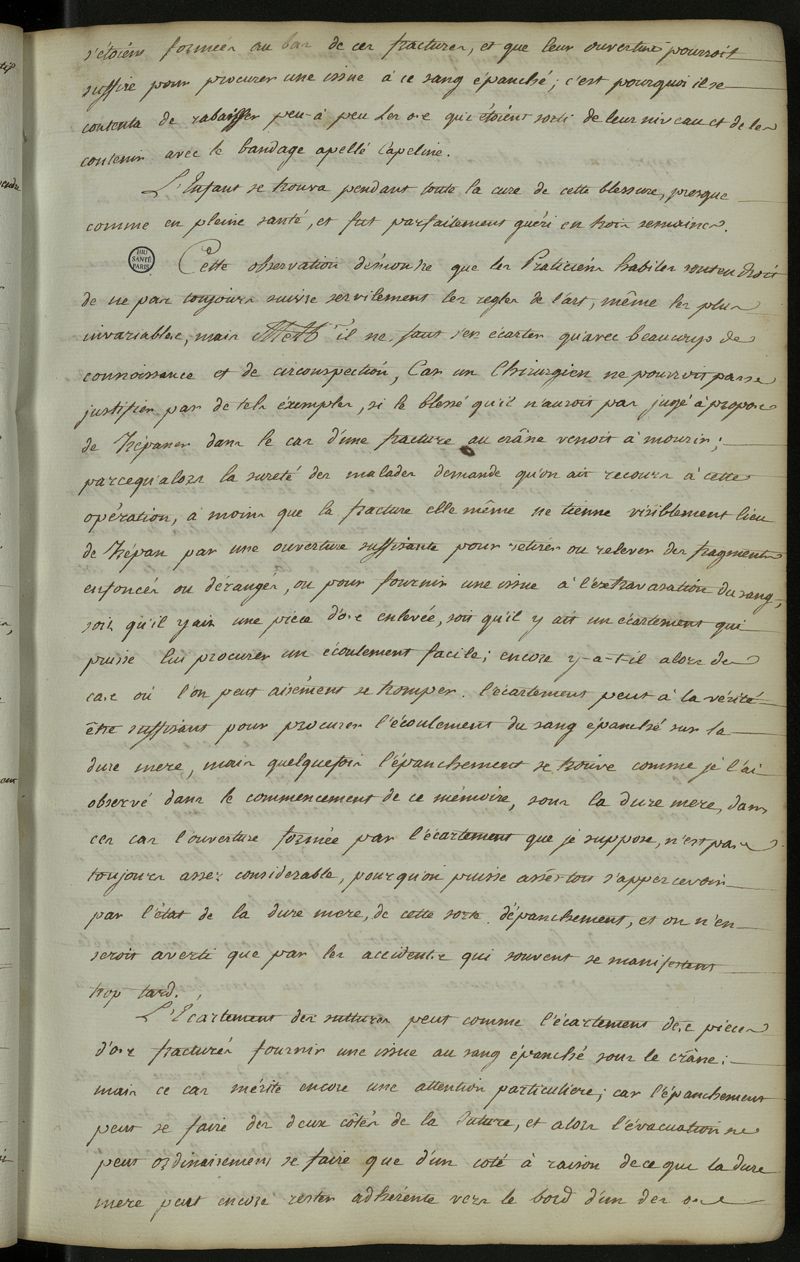 s'étoiént formées au bas de ces fractures, et que leur ouverture pourroit
suffire pour procurer une issue à ce sang épanché; c'est pourquoi il se
contenta de rabaisser peu-à peu Les os qui étoient sorti de leur niveau et de les
contenir avec le bandage apellé Capeline.
L'Enfant se trouva pendant toute la cure de cette blessure, presque
comme en pleine santé, et fut parfaitement guéri en trois semaines.
BIU SANTÉ PARIS
Cette observation démontre que les Praticiéns habiles sont en droit
de ne pas toujours suivre servilement les regles de l'art, même les plus
invariables, mais il ne faut s'en écarter qu'avec beaucoup de
connoissance et de circonspection, Car un Chirurgien ne pourroit pas se
justifier par de tels éxemples, si le blessé qu'il n'auroit pas jugé à propos
de trépaner dans le cas d'une fracture au crâne venoit à mourir;
parcequ'alors la sureté des malades demande qu'on ait recours à cette
opération, à moins que la fracture elle même ne tienne visiblement lieu
de trépan par une ouverture suffisante pour retirer ou relever des fragments
enfoncés ou dérangés, ou pour fournir une issue à l'éxtravasation du sang,
soit qu'il y ait une piece d'os enlevée, soit qu'il y ait un écartement qui
puisse lui procurer un écoulement facile; encore y-a-t-il alors des
cas où l'on peut aisément se tromper. l'écartement peut à la vérité
être suffisant pour procurer l'écoulement du sang épanché sur la
dure mere, mais quelquefois l'épanchement se trouve comme je l'ai
observé dans le commencement de ce mémoire, sous la dure mere, dans
ces cas l'ouverture formée par l'écartement que je suppose, n'est pas
toujours assez considerable, pour qu'on puisse assés tôt s'appercevoir
par l'état de la dure mere, de cette sorte d'épanchement, et on n'en
seroit averti que par les accidents qui souvent se manifestent
trop tard.
L'Ecartement des sutures peut comme l'écartement des pieces
d'os fracturés fournir une issue au sang épanché sous le crâne;
mais ce cas mérite encore une attention particuliere; car l'épanchement
peut se faire des deux côtés de la Suture, et alors l'évacuation ne
peut ordinairement se faire que d'un coté à raison de ce que la dure
mere peut encore rester adhérente vers le bord d'un des os